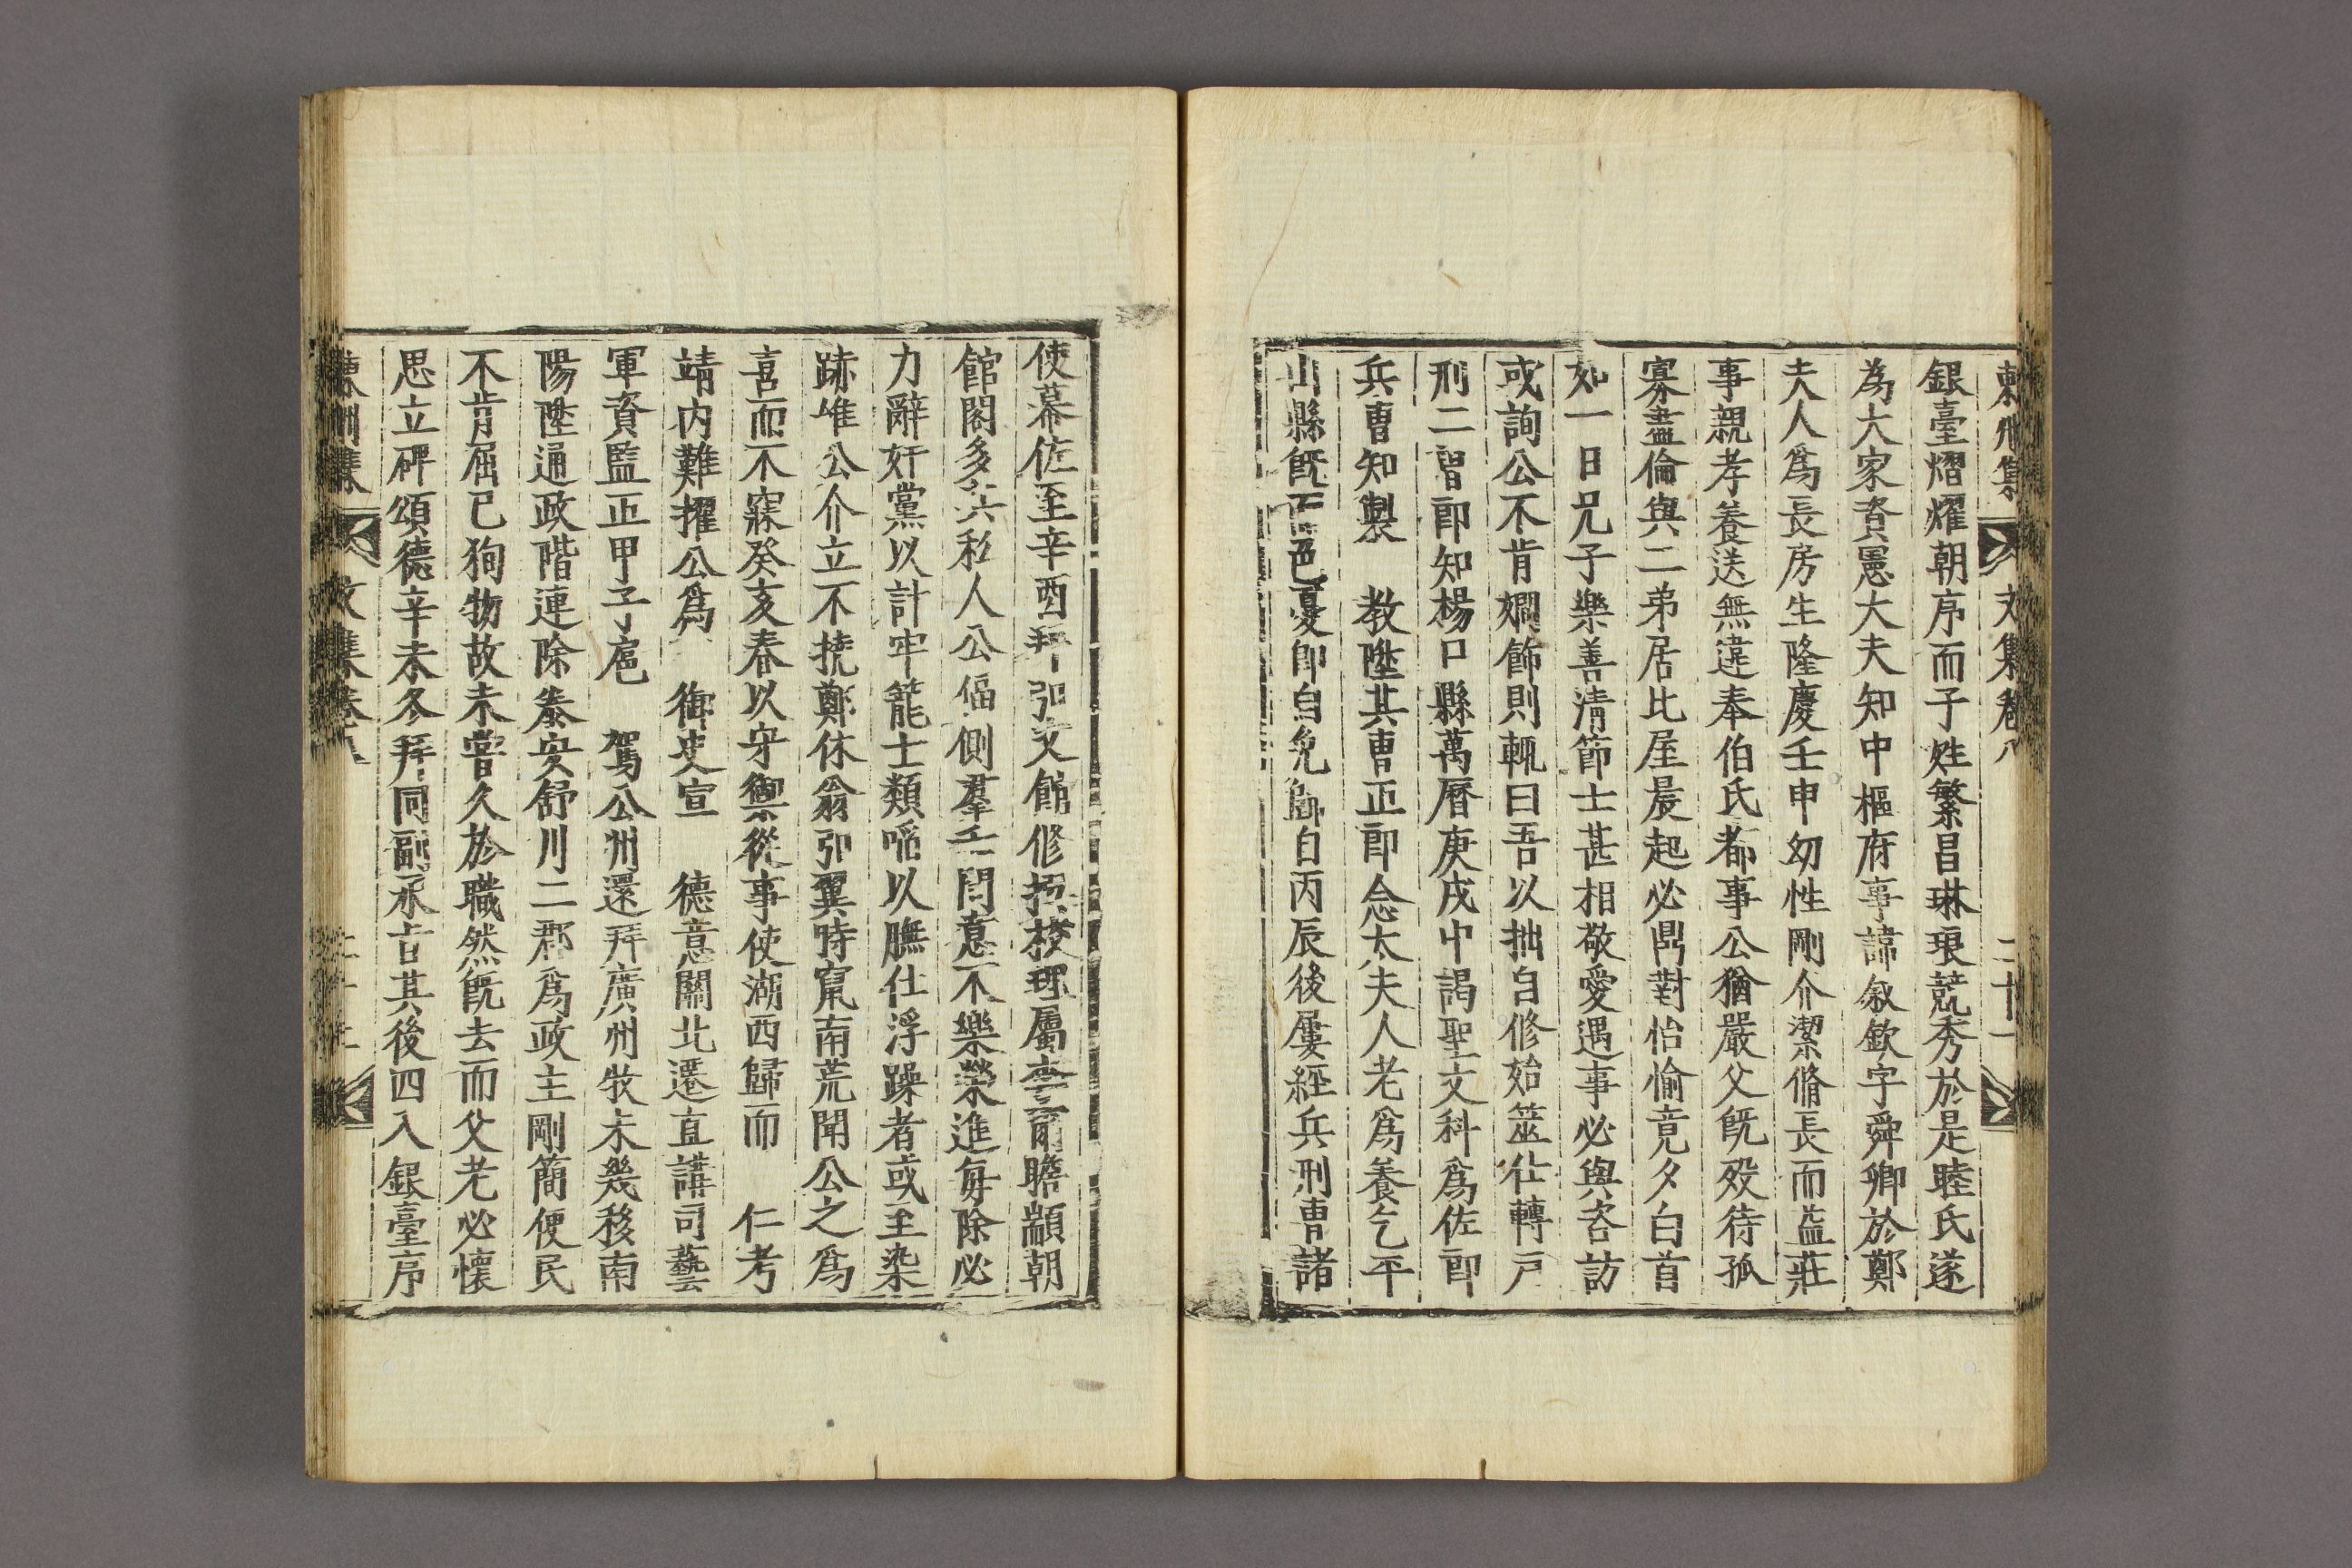 東州集 文集卷八 二十一
銀臺熠燿朝序而子姓繁昌琳琅競秀於是睦氏遂
為大家資憲大夫知中樞府事諱叙欽字舜卿於鄭
夫人爲長房生隆慶壬申幼性剛介潔脩長而益莊
事親孝養送無違奉伯氏都事公猶嚴父旣歿待孤
寡盡倫與二弟居比屋晨起必鼎對怡愉竟夕白首
如一日兄子樂善淸節士甚相敬愛遇事必與咨訪
或詢公不肯嫺飾則輒曰吾以拙自修始筮仕轉戶
刑二曺郞知楊口縣萬曆庚戌中謁聖文科爲佐郞
兵曹知製 敎陞其曹正郞念太夫人老爲養乞平
山縣旣 邑憂卽自免 自丙辰後屢經兵刑曹諸
使幕佐至辛酉拜弘文館修撰校理屬李爾瞻顓朝
館閣多其私人公偪側羣壬間意不樂榮進每除必
力辭奸黨以計牢籠士類啗以膴仕浮躁者或至染
跡唯公介立不撓鄭休翁弘翼時竄南荒聞公之爲
喜而不寐癸亥春以守禦從事使湖西歸而 仁考
靖內難擢公爲 御史宣 德意關北還直講司藝
軍資監正甲子扈 駕公州還拜廣州牧未幾移南
陽陞通政階連除泰安舒川二郡爲政主剛簡便民
不肯屈己狥物故未嘗久於職然旣去而父老必懷
思立碑頌德辛未冬拜同副承旨其後四入銀臺序
東州集 文集卷八